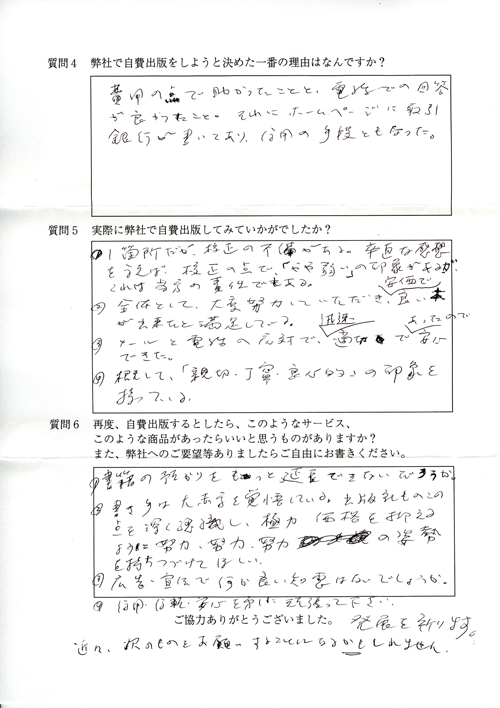 質問4 弊社で自費出版をしようと決めた一番の理由はなんですか？
費用の点で助かったことと、電話での回答
が良かったこと。それにホームページに取引
銀行が書いてあり、信用の手段ともなった。
質問5 実際に弊社で自費出版してみていかがでしたか？
① 1箇所だが、校正の不備がある。率直な感想
を言えば、校正の点で、「やや弱い」の印象があるが、
これは当方の責任でもある。
② 全体として、大変努力していただき、安価で良い本
が出来たと満足している。
③ メールと電話の応対で、迅速 で あったので安心
できた。
④ 概して、「親切・丁寧・良心的」の印象を
持っている。
質問6 再度、自費出版するとしたら、このようなサービス、
このような商品があったらいいと思うものがありますか？
また、弊社へのご要望等ありましたらご自由にお書きください。
① 書籍の預かりをもっと延長できないだろうか。
② 書き手は大赤字を覚悟している。出版社もこの
点を深く認識し、極力 価格を抑える
ように努力、努力、努力 の姿勢
を持ちつづけてほしい。
③ 広告・宣伝で何か良い知恵はないでしょうか。
④ 信用・信頼・安心を 頑張って下さい。
ご協力ありがとうございました。 発展を祈ります。
近々、次のものをお願いすることになるかもしれません。